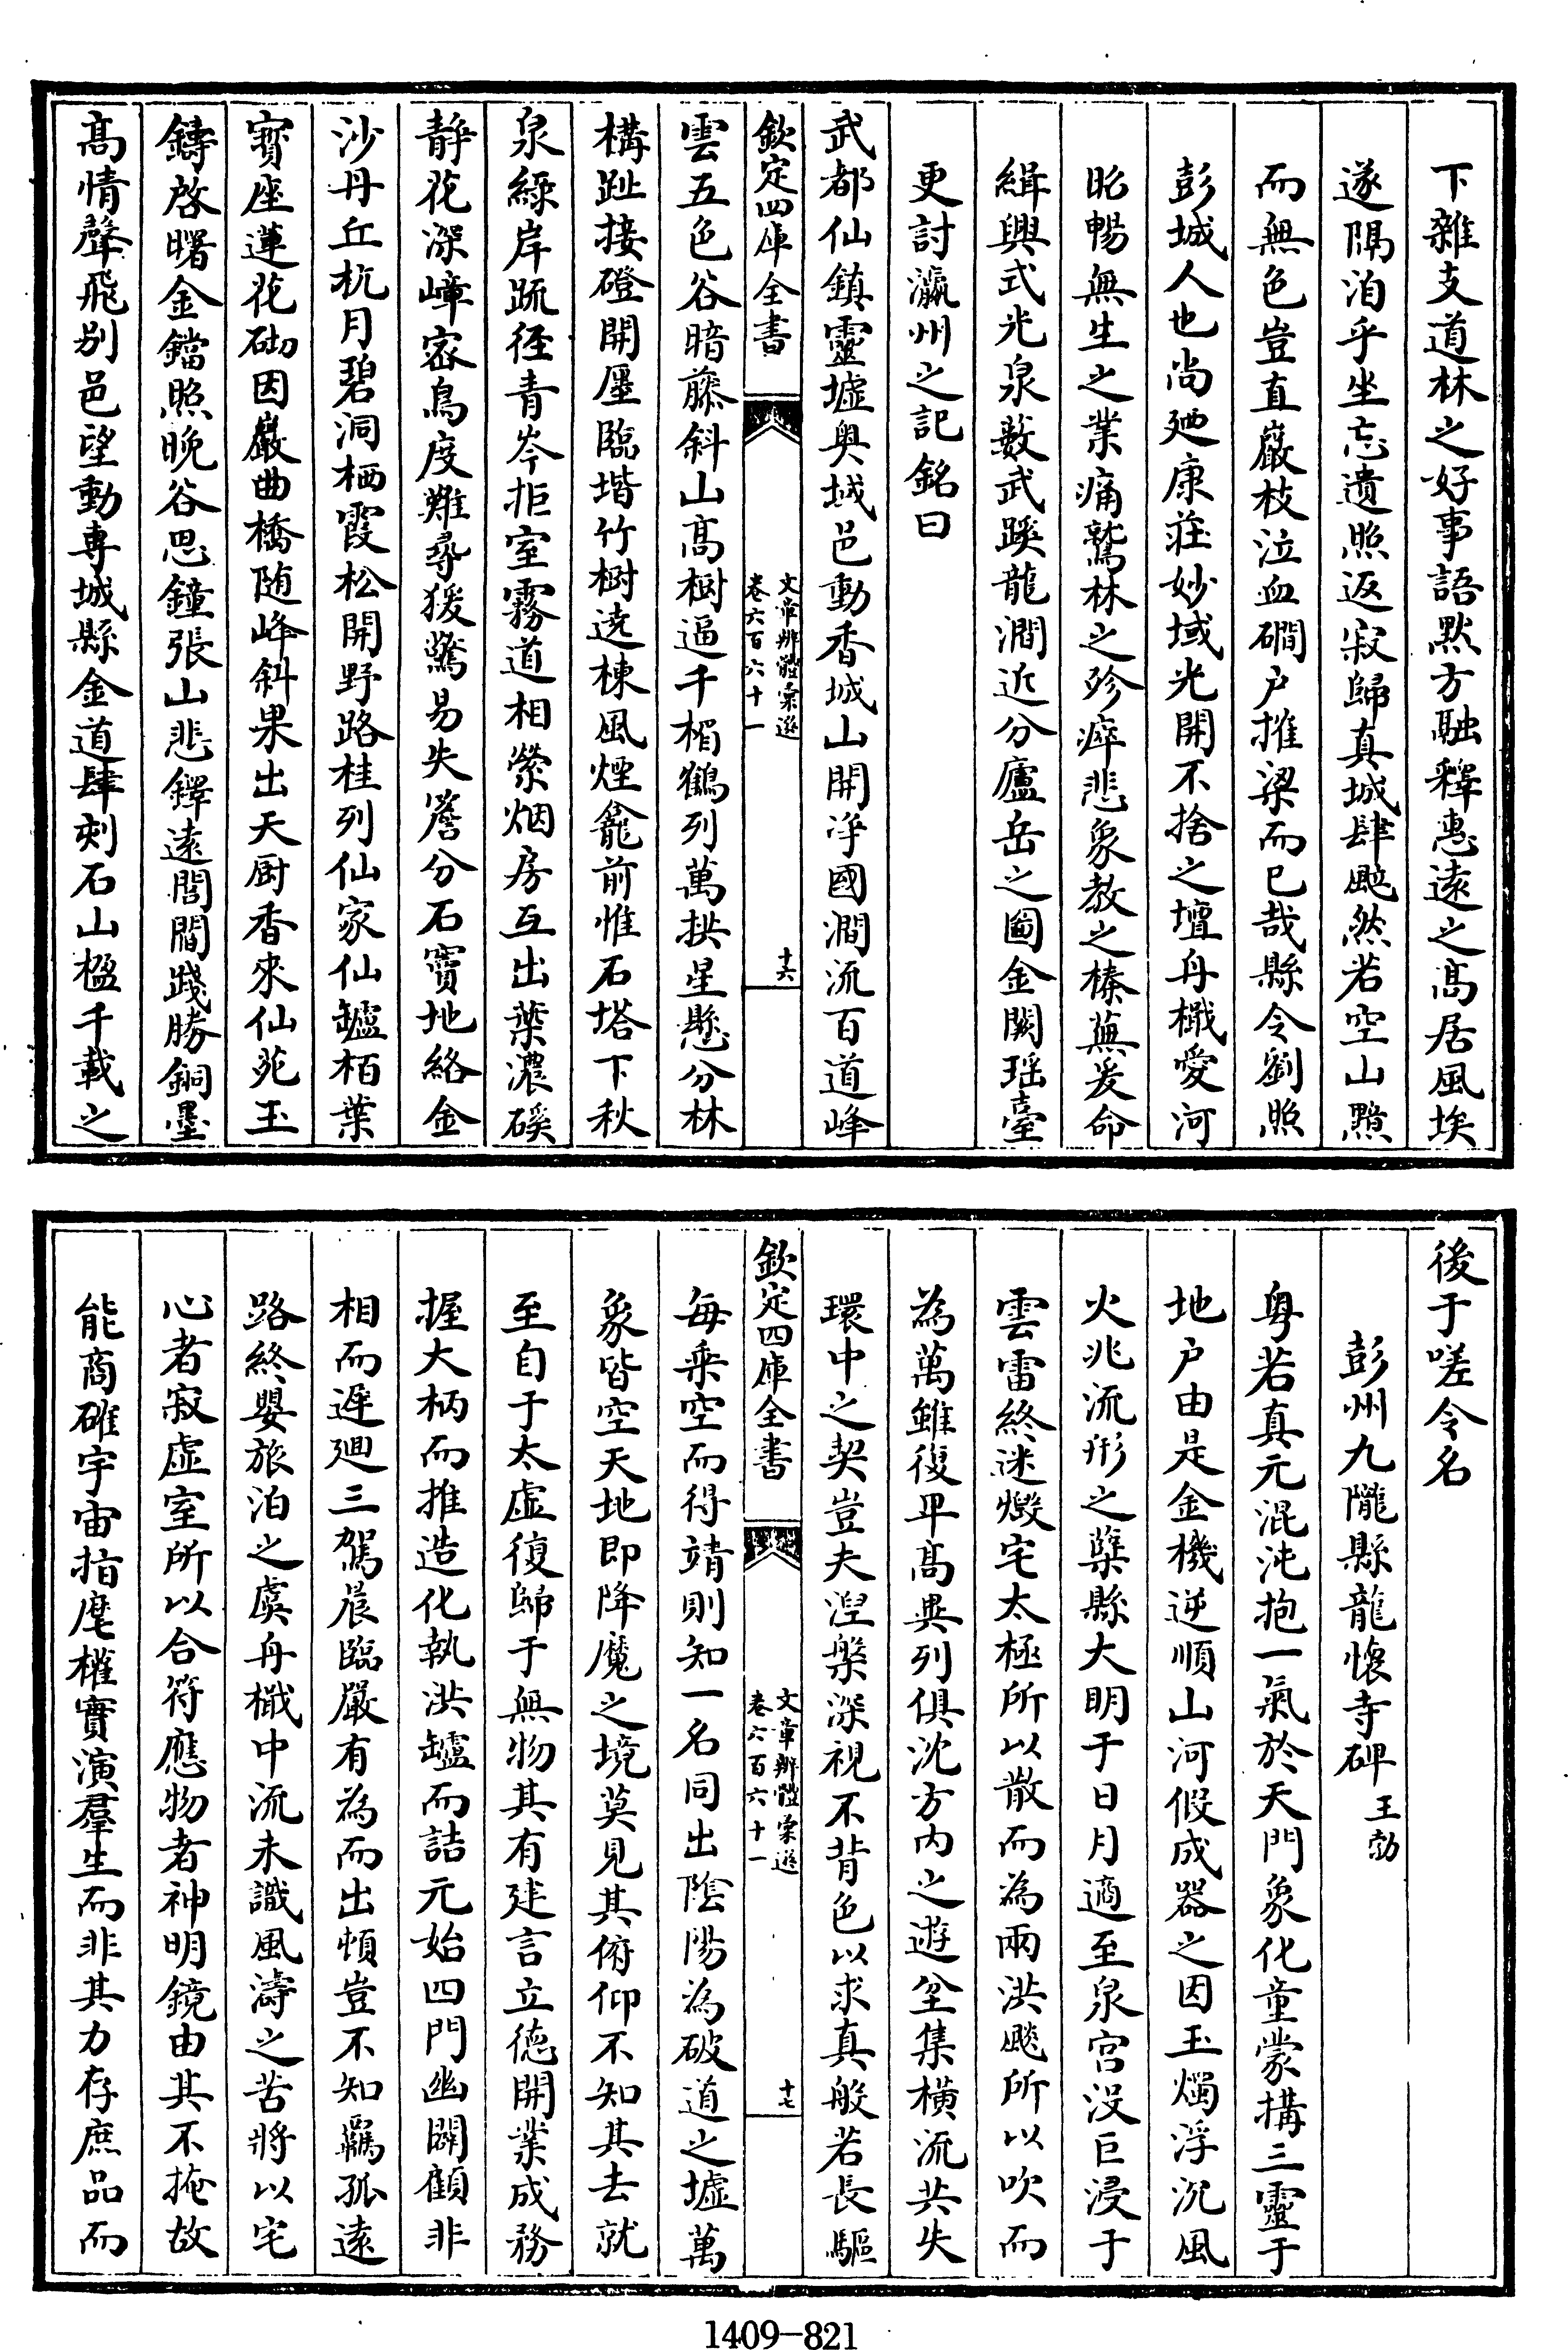 下雜支道林之好事語黙方融釋惠逺之髙居風埃
遂隔洎乎坐忘遺照返寂歸真城肆颰然若空山黯
而無色豈直巖枝泣血磵户摧梁而已哉縣令劉照
彭城人也尚廼康莊妙域光開不捨之壇舟檝愛河
昭暢無生之業痛鷲林之殄瘁悲象教之榛蕪爰命
緝興式光泉藪武蹊龍澗近分廬岳之圖金闕瑶臺
更討瀛州之記銘曰
武都仙鎮靈墟奥域邑動香城山開浄國澗流百道峰
欽定四庫全書
文章辨體彙選
卷六百六十一
十六
雲五色谷暗藤斜山髙樹逼千楣鶴列萬拱星懸分林
構趾接磴開廛臨堦竹樹遶棟風煙龕前惟石塔下秋
泉緑岸疏徑青岑拒室霧道相縈烟房互出葉濃磎
静花深嶂宻鳥度難尋猨驚易失簷分石寳地絡金
沙丹丘杭月碧洞栖霞松開野路桂列仙家仙鑪栢葉
寳座蓮花砌因巖曲橋随峰斜果出天厨香來仙苑玉
鑄啓曙金鐺照晚谷思鐘張山悲鐸逺誾誾踐勝銅墨
髙情聲飛别邑望動專城縣金道肆刻石山楹千載之
後于嗟令名
彭州九隴縣龍懷寺碑 王勃
粤若真元混沌抱一氣於天門象化童蒙搆三靈于
地户由是金機逆順山河假成器之因玉燭浮沉風
火兆流形之蘖縣大明于日月適至泉宫没巨浸于
雲雷終迷燬宅太極所以散而為兩洪飈所以吹而
為萬雖復平髙異列俱沈方内之遊坌集横流共失
環中之契豈夫湼槃深視不背色以求真般若長驅
欽定四庫全書
文章辨體彙選
卷六百六十一
十七
每乘空而得靖則知一名同出隂陽為破道之墟萬
象皆空天地即降魔之境莫見其俯仰不知其去就
至自于太虚復歸于無物其有建言立徳開業成務
握大柄而推造化執洪鑪而詰元始四門幽闢顧非
相而遲廻三駕晨臨嚴有為而出頓豈不知羈孤逺
路終嬰旅泊之虞舟檝中流未識風濤之苦將以宅
心者寂虚室所以合符應物者神明鏡由其不掩故
能商確宇宙指麾權實演羣生而非其力存庶品而
1409-821